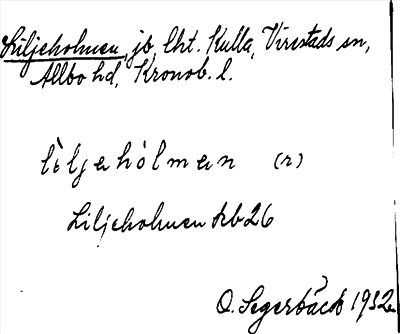 Liljeholmen, jb, lht. Kulla, Virestads sn,
Allbo hd, Kronob. l.
lìljehòlmen (r)
Liljeholmen kb 26
O. Segerbäck 1932